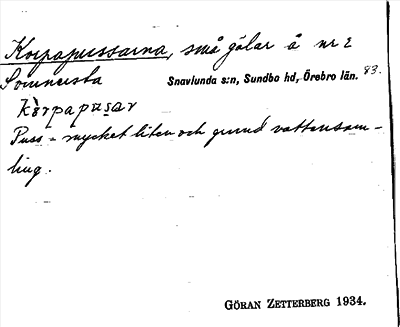 Korpapussarna, små gölar å nr 2
Sommersta Snavlunda s:n, Sundbo hd, Örebro län. 83.
kòrpapusar
Puss = mycket liten och grund vattensam-
ling.
GÖRAN ZETTERBERG 1934.